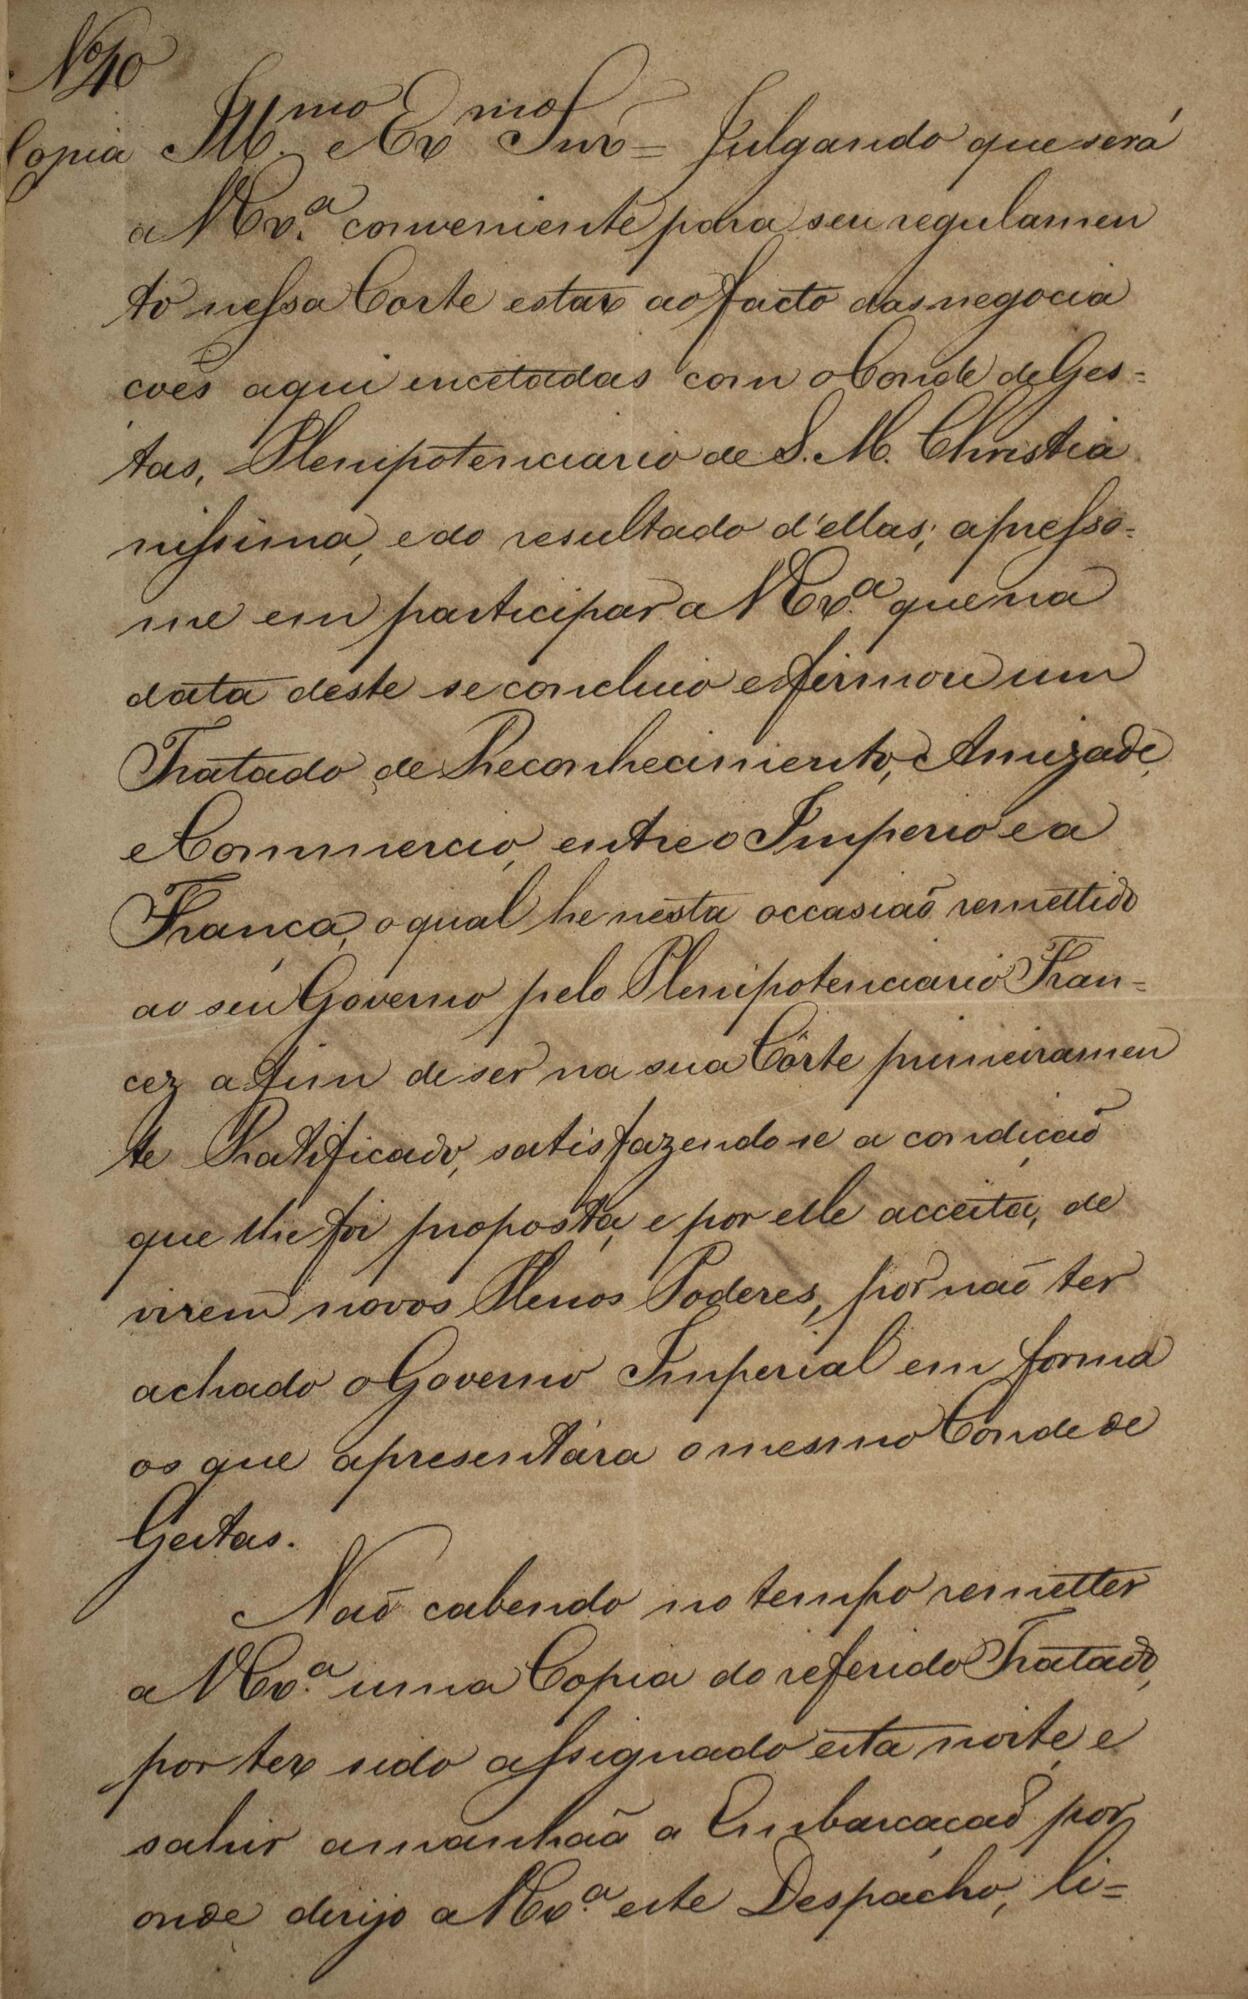 Nº 40
Copia Ill.mo e Ex mo Snr = Julgando que será
a V Ex.a conveniente para seu regulamen
to nessa Corte estar ao facto das negocia
coēs aqui encetadas com o Conde de Ges=
tas, Plenipotenciario de S. M. Christia
nissima, e do resultado d'ellas; apresso-
me em participar a V Ex.a que na
data deste se concluio e firmou um
Tratado de Reconhecimento, Amizade,
e Commercio, entre o Imperio e a
França, o qual he nesta occasiaõ remettido
ao seu Governo pelo Plenipotenciario Fran=
cez a fim de ser na sua Côrte primeiramen
te Ratificado, satisfazendo-se a condiçaõ
que lhe foi proposta, e por elle acceita, de
virem novos Plenos Poderes, por naõ ter
achado o Governo Imperial em forma
os que apresentára o mesmo Conde de
Gestas.
Naõ cabendo no tempo remetter
a V Ex.a uma Copia do referido Tratado,
por ter sido assignado esta noite, e
sahir amanhãa a Embarcaçaõ por
onde dirijo a V Ex.a este Despacho, li=